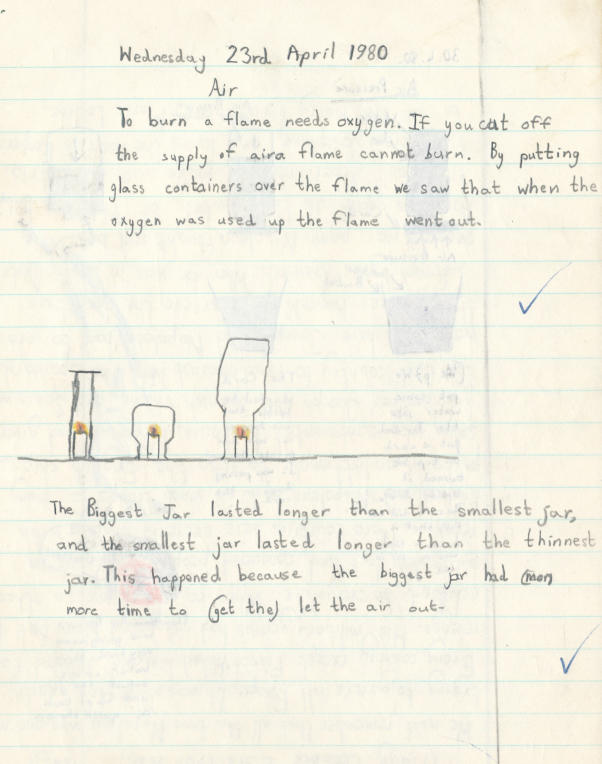 Wednesday 23rd April 1980
Air
To burn a flame needs oxygen. If you cut off
the supply of air a flame cannot burn. By putting
glass containers over the flame we saw that when the
oxygen was used up the flame went out.
The Biggest Jar lasted longer than the smallest jar,
and the smallest jar lasted longer than the thinnest
jar. This happened because the biggest jar had (mon)
more time to (get the) let the air out.